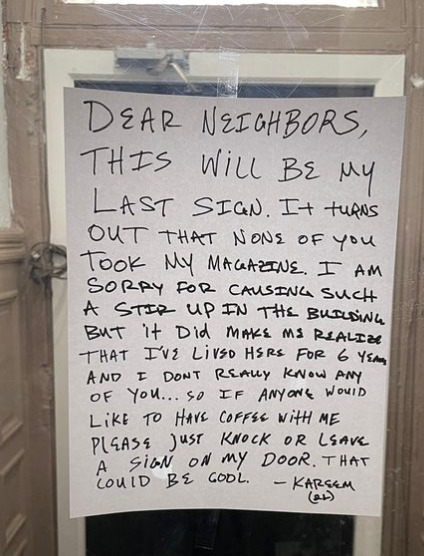 DEAR NEIGHBORS,
THIS WILL BE MY
LAST SIGN. IT TURNS
OUT THAT NONE OF YOU
TOOK MY MAGAZINE. I AM
SORRY FOR CAUSING SUCH
A STIR UP IN THE BUILDING
BUT it Did MAKE ME REALIZE
THAT I'VE LIVED HERE FOR 6 YEARS
AND I DONT REALLY KNOW ANY
OF YOU... SO IF ANYONE WOULD
LIKE TO HAVE COFFEE WITH ME
PLEASE JUST KNOCK OR LEAVE
A SIGN ON MY DOOR. THAT
COULD BE COOL. - KAREEM